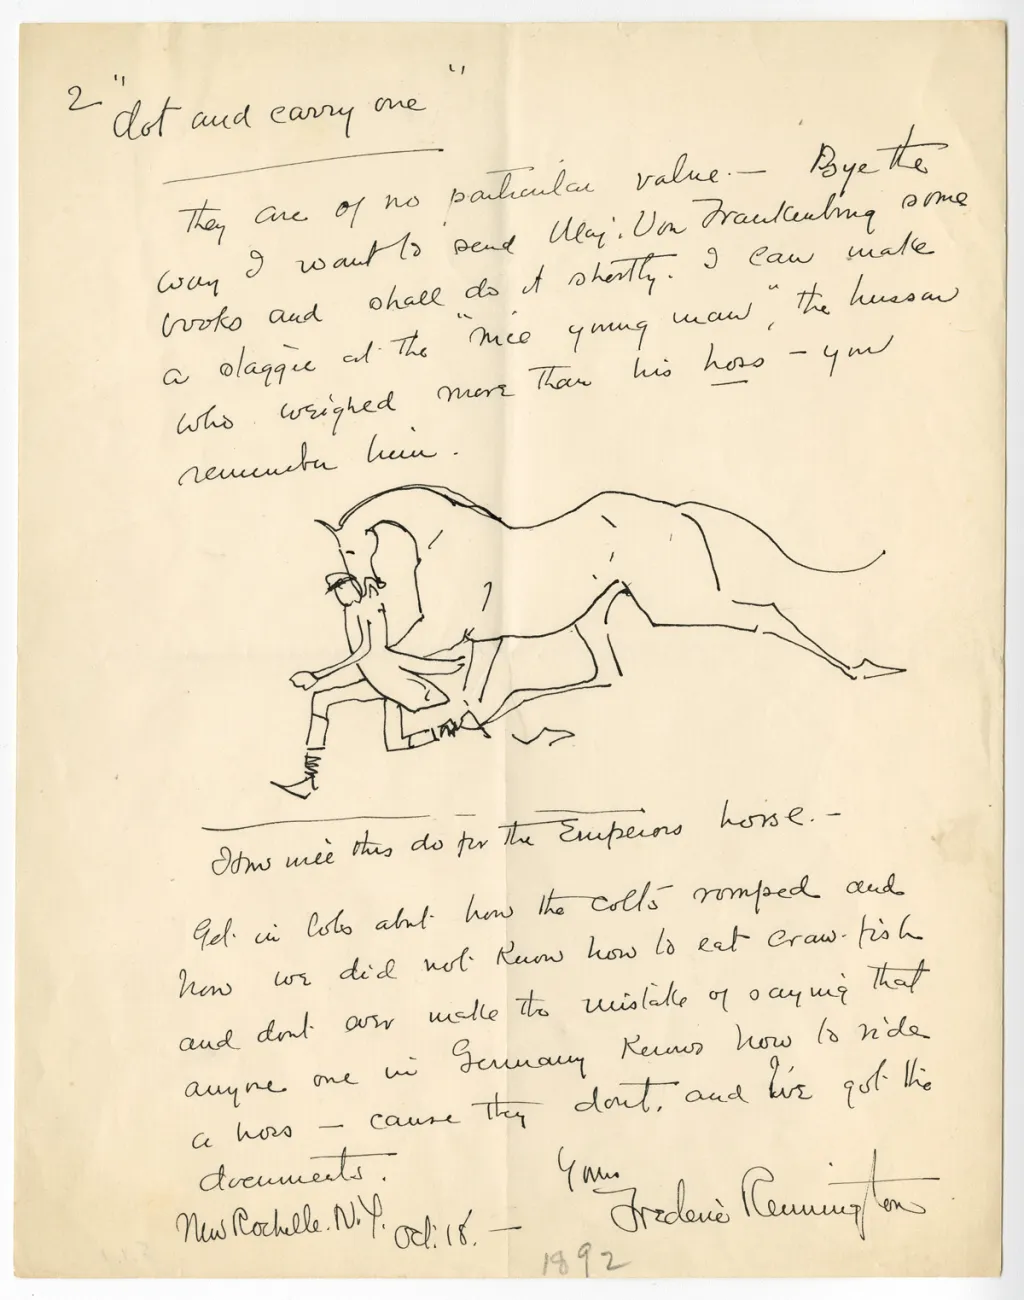 2 "dot and carry one"
They are of no particular value. — Bye the
way I want to send Maj. Von Frankenburg some
books and shall do it shortly. I can make
a staggie at the "nice young man", the hussar
who weighed more than his hoss – you
remember him.
How nice this do for the Emperors horse. –
Get in lots about how the colts romped and
how we did not know how to eat craw-fish
and dont over make the mistake of saying that
anyone one in Germany knows how to ride
a hoss – cause they dont, and I've got the
documents.
Yours
Frederic Remington
New Rochelle. N.Y. Oct. 18. –
1892